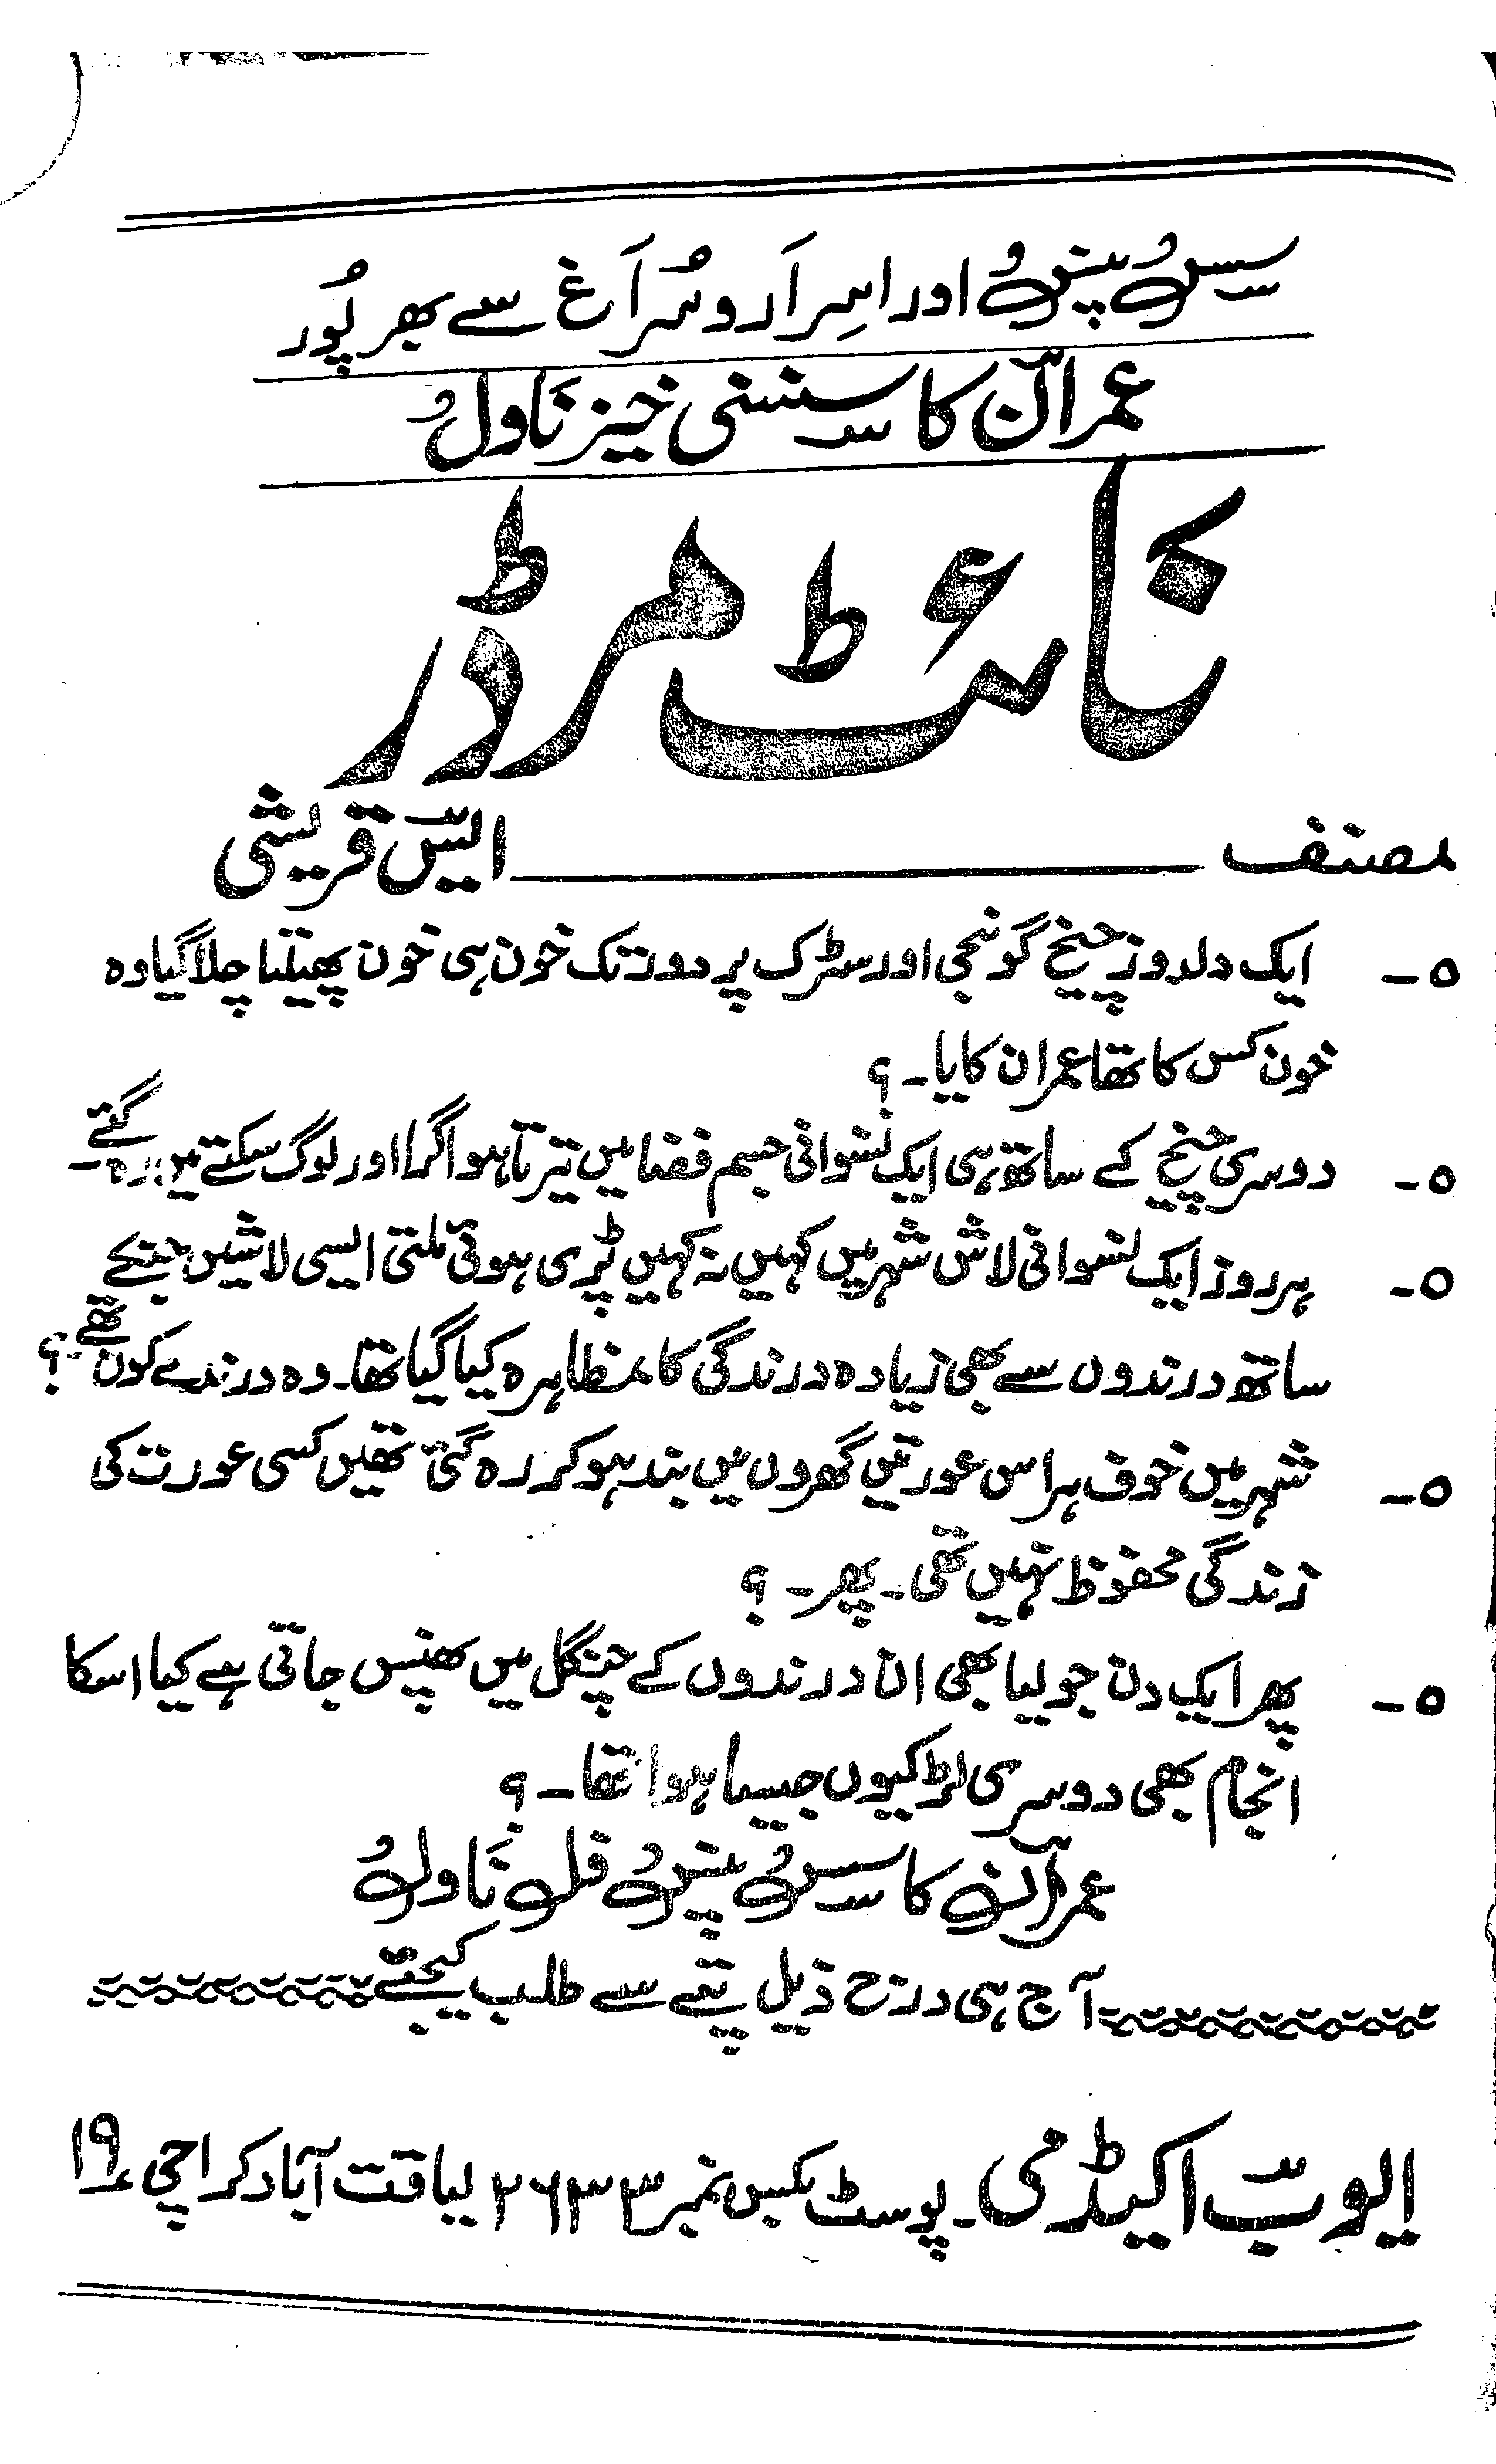 سسپنس اور اسرار و سُراغ سے بھرپُور
عمران کا سنسنی خیز ناول
نائٹ مرڈر
مصنف ـــــــــ ایس قریشی
۵ـ ایک دلدوز چیخ گونجی اور سڑک پر دور تک خون ہی خون پھیلتا چلا گیا وہ
خون کس کا تھا عمران کا یا۔ ؟
۵ـ دوسری چیخ کے ساتھ ہی ایک نسوانی جسم فضا میں تیرتا ہوا گرا اور لوگ سکتے میں رہ گئے۔
۵ـ ہر روز ایک نسوانی لاش شہر میں کہیں نہ کہیں پڑی ہوئی ملتی ایسی لاشیں جنکے
ساتھ درندوں سے بھی زیادہ درندگی کا مظاہرہ کیا گیا تھا۔ وہ درندے کون تھے۔ ؟
۵ـ شہر میں خوف ہراس عورتیں گھروں میں بند ہو کر رہ گئی تھیں کسی عورت کی
زندگی محفوظ نہیں تھی۔ پھر۔ ؟
۵ـ پھر ایک دن جولیا بھی ان درندوں کے چنگل میں پھنس جاتی ہے کیا اسکا
انجام بھی دوسری لڑکیوں جیسا ہوا تھا۔ ؟
عمران کا سسپنس فل ناول
آج ہی درج ذیل پتے سے طلب کیجئے
ایوب اکیڈمی۔ پوسٹ بکس نمبر ۲۶۳۳ لیاقت آباد کراچی ۱۹